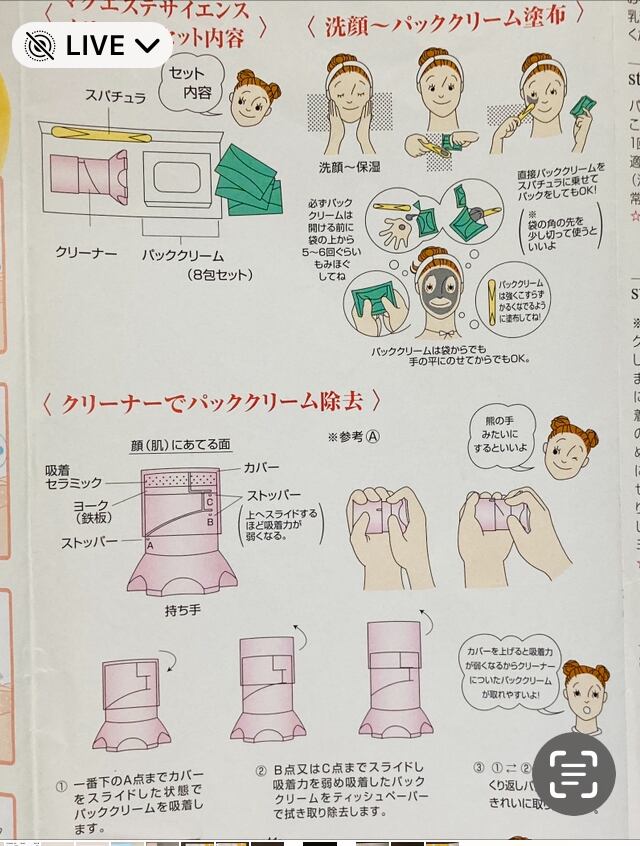 LIVE
マグエステサイエンス
セット内容
セット
内容
スパチュラ
クリーナー
パッククリーム
（8包セット）
〈 洗顔〜パッククリーム塗布 〉
洗顔〜保湿
直接パッククリームを
スパチュラに乗せて
パックをしてもOK!
※
袋の角の先を
少し切って使うと
いいよ
必ずパック
クリームは
開ける前に
袋の上から
5〜6回ぐらい
もみほぐ
してね
パッククリーム
は強くこすらず
かるくなでるよう
に塗布してね!
パッククリームは袋からでも
手の平にのせてからでもOK。
〈 クリーナーでパッククリーム除去 〉
顔（肌）にあてる面
吸着
セラミック
ヨーク
（鉄板）
ストッパー
カバー
ストッパー
上へスライドする
ほど吸着力が
弱くなる。
C
B
A
持ち手
※参考Ⓐ
熊の手
みたいに
するといいよ
カバーを上げると吸着力
が弱くなるからクリーナー
についたパッククリーム
が取れやすいよ!
① 一番下のA点までカバー
をスライドした状態で
パッククリームを吸着し
ます。
② B点又はC点までスライドし
吸着力を弱め吸着したパック
クリームをティッシュペーパー
で拭き取り除去します。
③ ①⇄②
くり返し
きれいに取